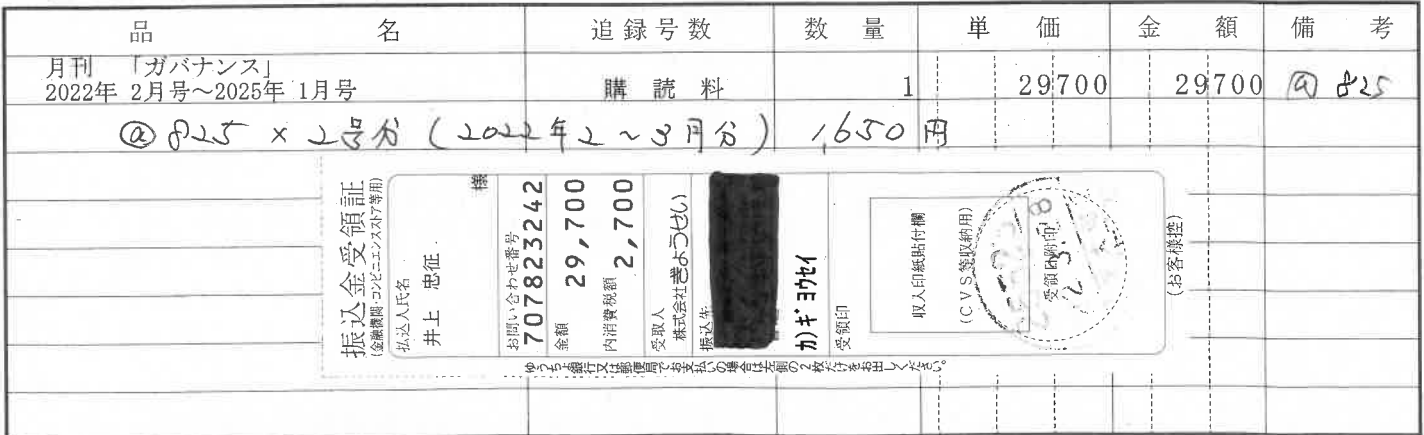 品 名 追録号数 数 量 単 価 金 額 備 考
月刊 「ガバナンス」
2022年 2月号～2025年 1月号 購 読 料 1 29700 29700 @ 825
@825 × 2号分 (2022年2～3月分) 1,650円
振込金受領証
(金融機関・コンビニエンスストア等用)
払込人氏名
井上 忠征 様
お問い合わせ番号
707823242
金額
29,700
内消費税額
2,700
受取人
株式会社ぎょうせい
振込先
カ)ギヨウセイ
受領印
収入印紙貼付欄
(CVS等収納用)
受領日附印
(お客様控)
ゆうちょ銀行又は郵便局でお支払いの場合は左側の2枚だけをお出しください。